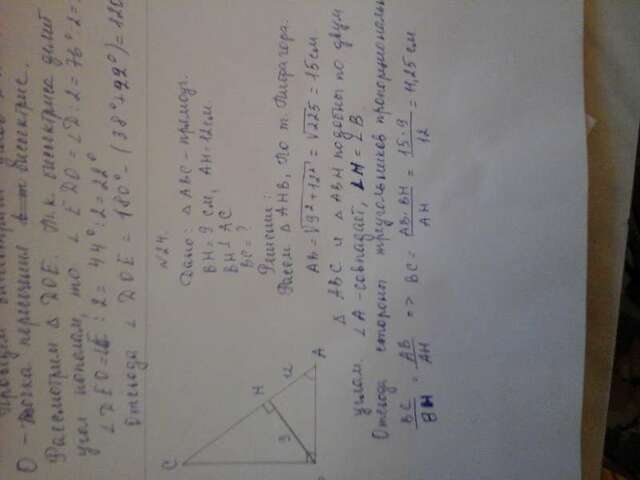 Проведём биссектрисы углов
О - точка пересечения биссектрис.
Рассмотрим △ DOE. Т.к. биссектриса делит
угол пополам, то ∠ EDO = ∠D : 2 = 76° : 2 =
∠DEO = ∠E : 2 = 44° : 2 = 22°
Отсюда ∠ DOE = 180° - (38° + 22°) = 120
N24.
Дано: △ ABC - прямоуг.
BH = 9 см, AH = 12 см
BH ⊥ AC
BC = ?
Решение:
Рассм. △ AHB, По т. Пифагора:
AB = √9² + 12² = √225 = 15 см
△ ABC и △ ABH подобны по двум
углам. ∠A - совпадает, ∠H = ∠B.
Отсюда стороны треугольников пропорциональн
BC/BH = AB/AH => BC = AB · BH/AH = 15 · 9/12 = 11,25 см
C
H
9
12
A